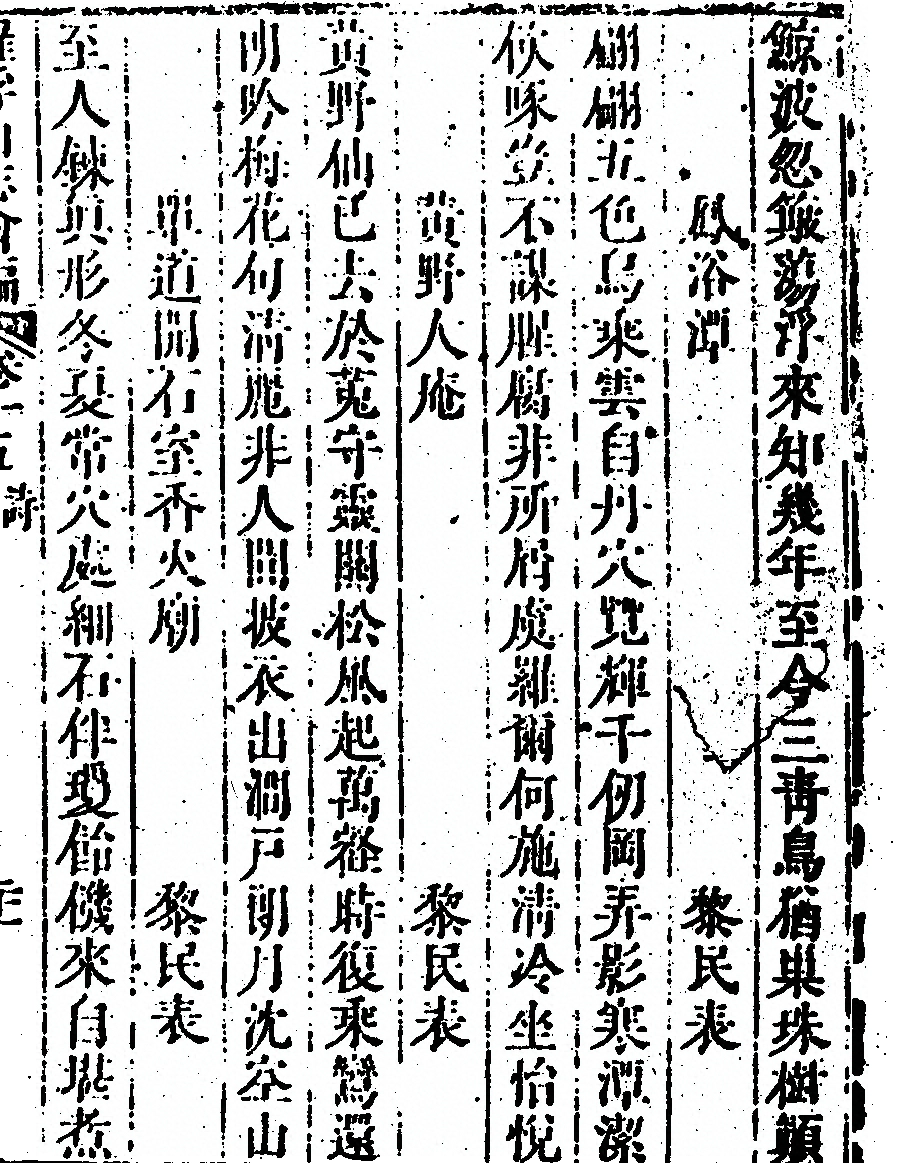 鯨波忽簸蕩浮來知幾年至今三靑鳥猶巢珠樹顚
鳳浴潭 黎民表
翩翩五色鳥乘雲自丹穴覽輝千仞岡弄影寒潭潔
俠啄豈不謀腥腐非所屑虞羅爾何施清冷坐怡悅
黃野人庵 黎民表
黃野仙已去於菟守靈關松風起萬壑時復乘鸞還
朗吟梅花句清麗非人間披衣山澗戶朗月沈空山
單道開石室香火廟 黎民表
至人鍊眞形冬夏常穴處細石伴瓊飴饑來自堪煮